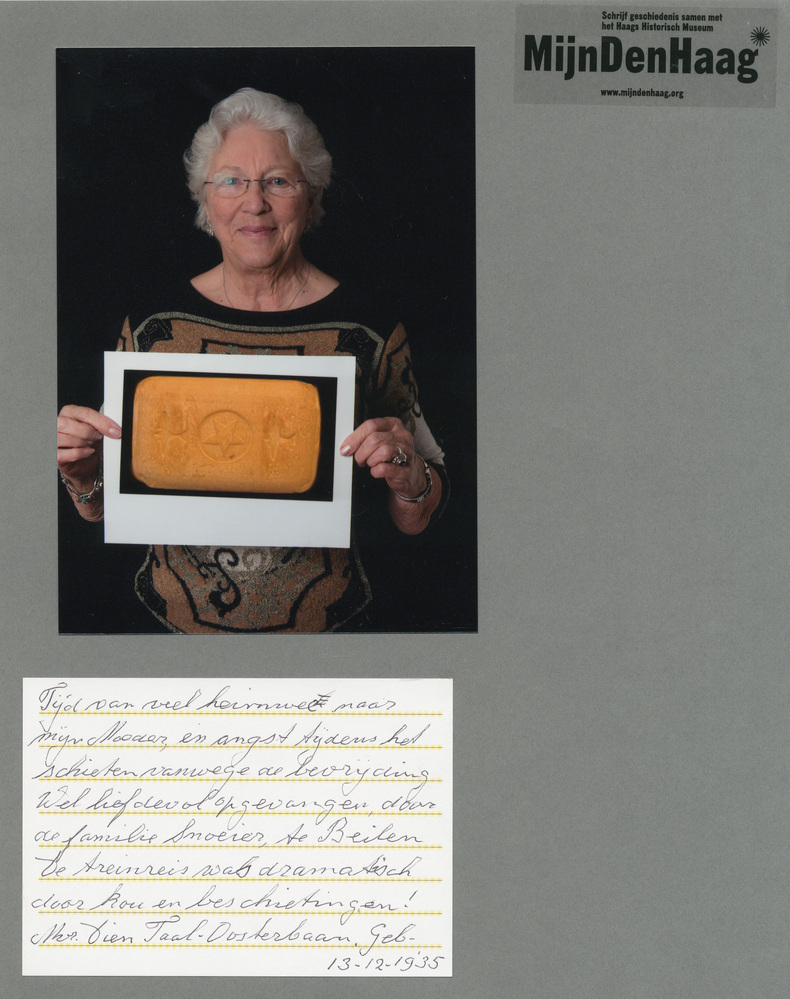 Schrijf geschiedenis samen met
het Haags Historisch Museum
MijnDenHaag
www.mijndenhaag.org
Tijd van veel heimwee naar
mijn Moeder, en angst tijdens het
schieten vanwege de bevrijding
Wel liefdevol opgevangen, door
de familie Snoeier, te Beilen
De treinreis was dramatisch
door kou en beschietingen!
Mvr. Dien Taal-Oosterbaan. Geb-
13-12-1935